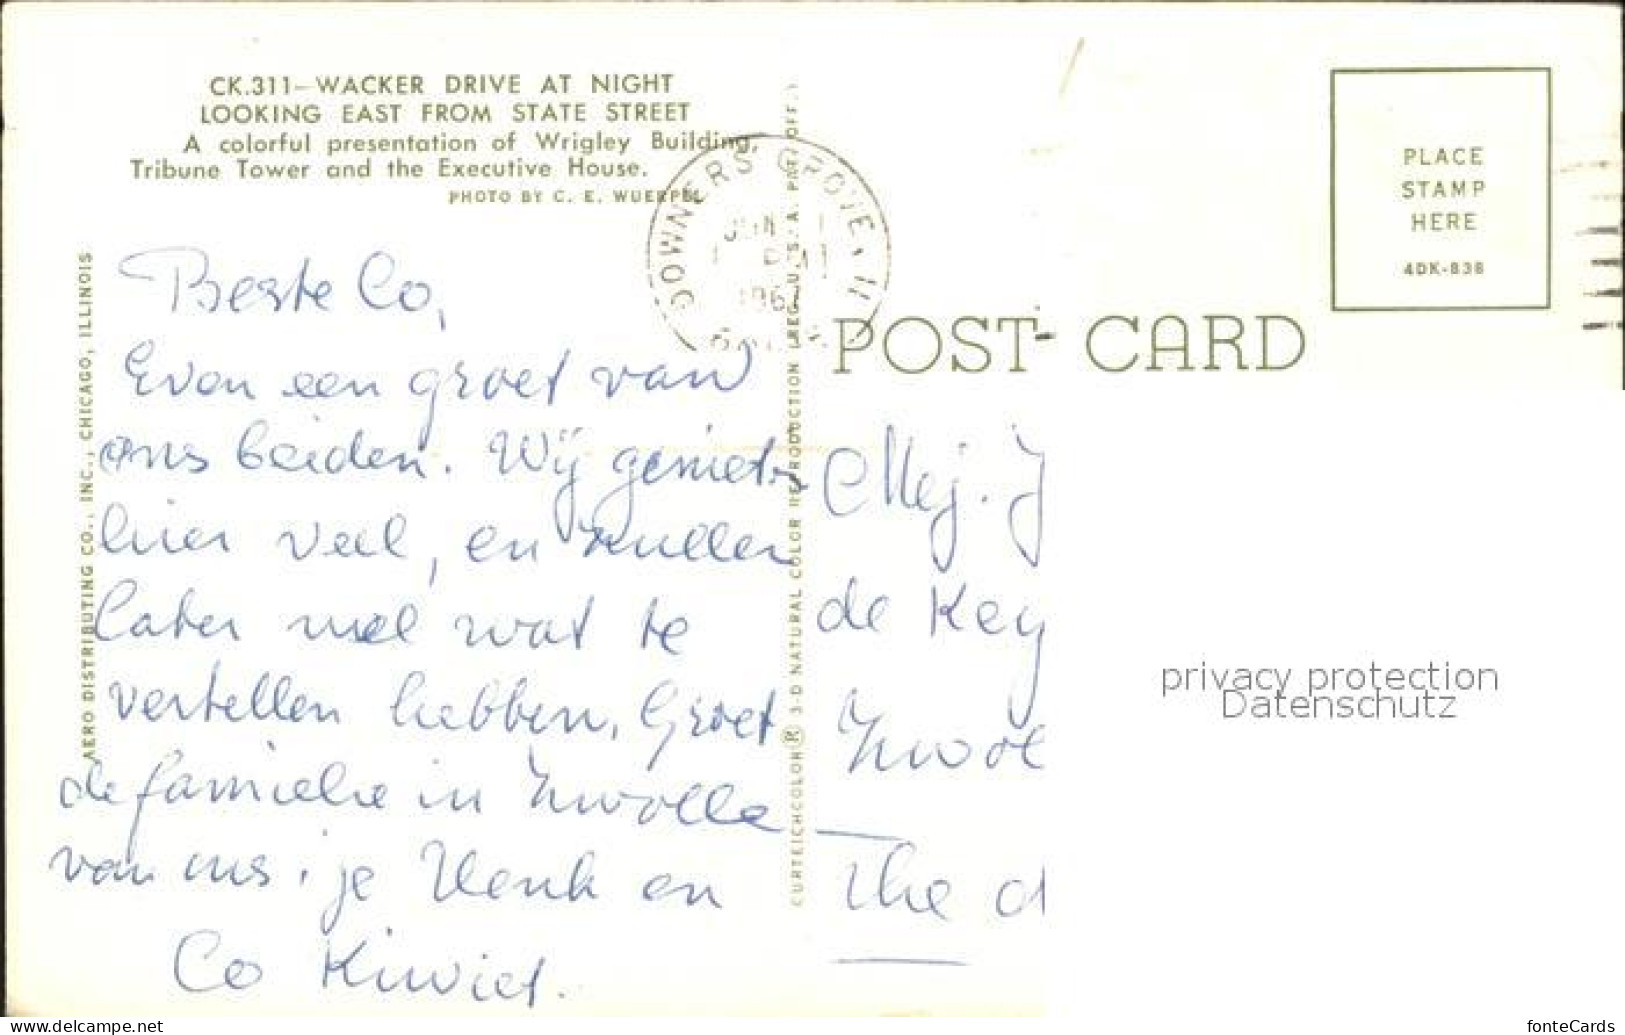 CK.311—WACKER DRIVE AT NIGHT
LOOKING EAST FROM STATE STREET
A colorful presentation of Wrigley Building,
Tribune Tower and the Executive House.
PHOTO BY C. E. WUERPEL
Beste Co,
Even een groet van
ons beiden. Wij genieten
hier veel, en zullen
later wel wat te
vertellen hebben. Groet
de familie in Zwolle
van ons. je Henk en
Co Kiwiet.
AERO DISTRIBUTING CO., INC., CHICAGO, ILLINOIS
CURTEICHCOLOR® 3-D NATURAL COLOR REPRODUCTION (REG. U.S.A. PAT. OFF.)
DOWNERS GROVE, ILL
JUN
PM
196
POST CARD
PLACE
STAMP
HERE
4DK-838
Mej. J
de Key
Zwol
The
privacy protection
Datenschutz
www.delcampe.net
fonteCards